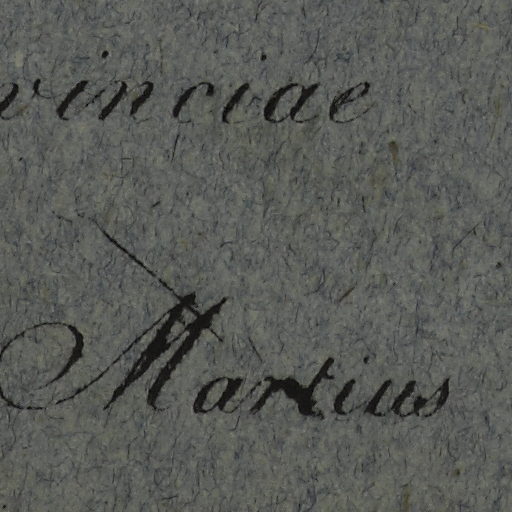 vinciae
Martius